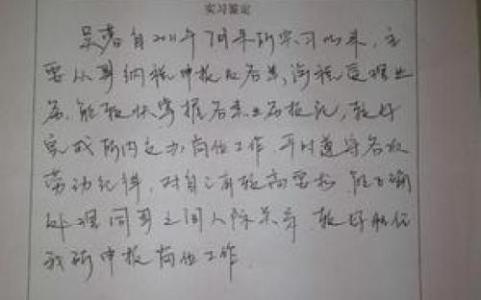 实习鉴定
吴蓉自2011年7月来所实习以来,主
要从事纳税申报及各类涉税受理业
务,能较快掌握各类业务技能,较好
完成所内交办岗位工作,平时遵守各项
劳动纪律,对自己有较高要求,能正确
处理同事之间人际关系,较好胜任
我所申报岗位工作